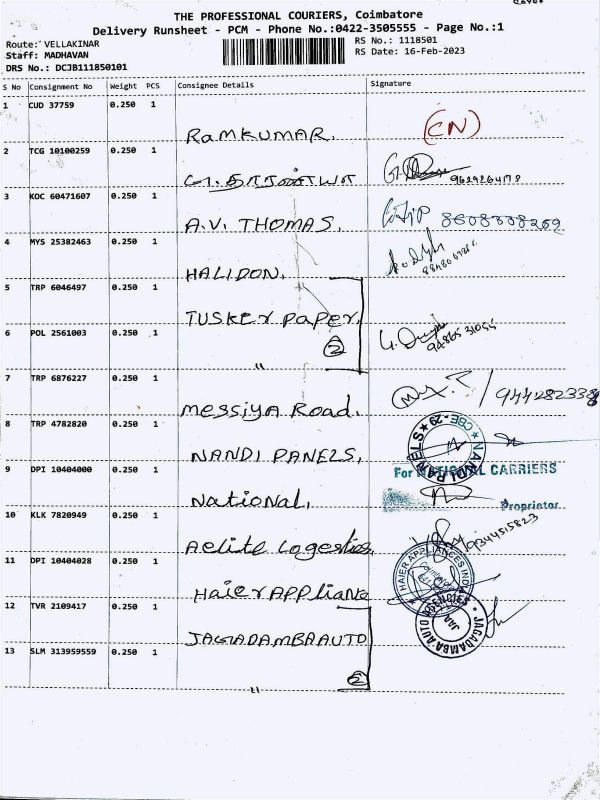 THE PROFESSIONAL COURIERS, Coimbatore
Delivery Runsheet - PCM - Phone No.:0422-3505555 - Page No.:1
Route: VELLAKINAR
Staff: MADHAVAN
DRS No.: DCJB111850101
RS No.: 1118501
RS Date: 16-Feb-2023
S No Consignment No Weight PCS Consignee Details Signature
1 CUD 37759 0.250 1
RAMKUMAR. (CN)
2 TCG 10100259 0.250 1
9629264178
3 KOC 60471607 0.250 1
A.V. THOMAS. 8608308269
4 MYS 25382463 0.250 1
HALIDON.
5 TRP 6046497 0.250 1
TUSKER PAPER.
2
6 POL 2561003 0.250 1
"
7 TRP 6876227 0.250 1
Messiya Road. 944282338
8 TRP 4782820 0.250 1
NANDI PANELS, NANDI PANELS CBE-29
9 DPI 10404000 0.250 1 For NATIONAL CARRIERS
National, Proprietor
10 KLK 7820949 0.250 1
Aelite Logestics, 9344515823
11 DPI 10404028 0.250 1
Haier APPlianc HAIER APPLIANCES INDIA
12 TVR 2109417 0.250 1
JAGADAMBA AUTO JAGADAMBA AUTO AGENCIES
13 SLM 313959559 0.250 1
2
"